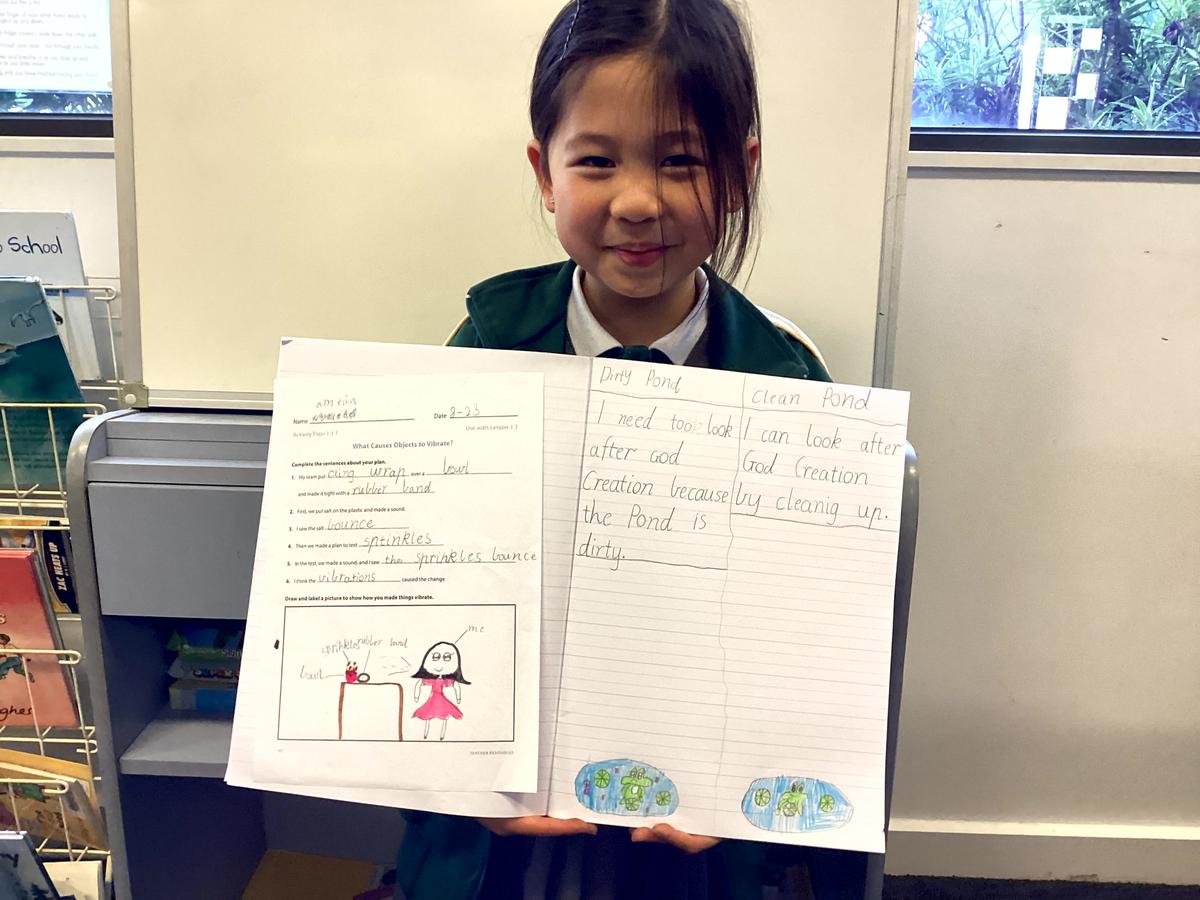 School
ZAC HEATS UP
ghes
Name amelia
Date 8-23
Activity Page 1.3.1
Use with Lesson 1.3
What Causes Objects to Vibrate?
Complete the sentences about your plan.
1. My team put cling wrap over a bowl
and made it tight with a rubber band
2. First, we put salt on the plastic and made a sound.
3. I saw the salt bounce
4. Then we made a plan to test sptinkles
5. In the test, we made a sound, and I saw the sprinkles bounce
6. I think the vibrations caused the change.
Draw and label a picture to show how you made things vibrate.
me
sprinkles rubber band
bowl
TEACHER RESOURCES
Dirty Pond
I need too look
after God
Creation because
the Pond is
dirty.
Clean Pond
I can look after
God Creation
by cleanig up.